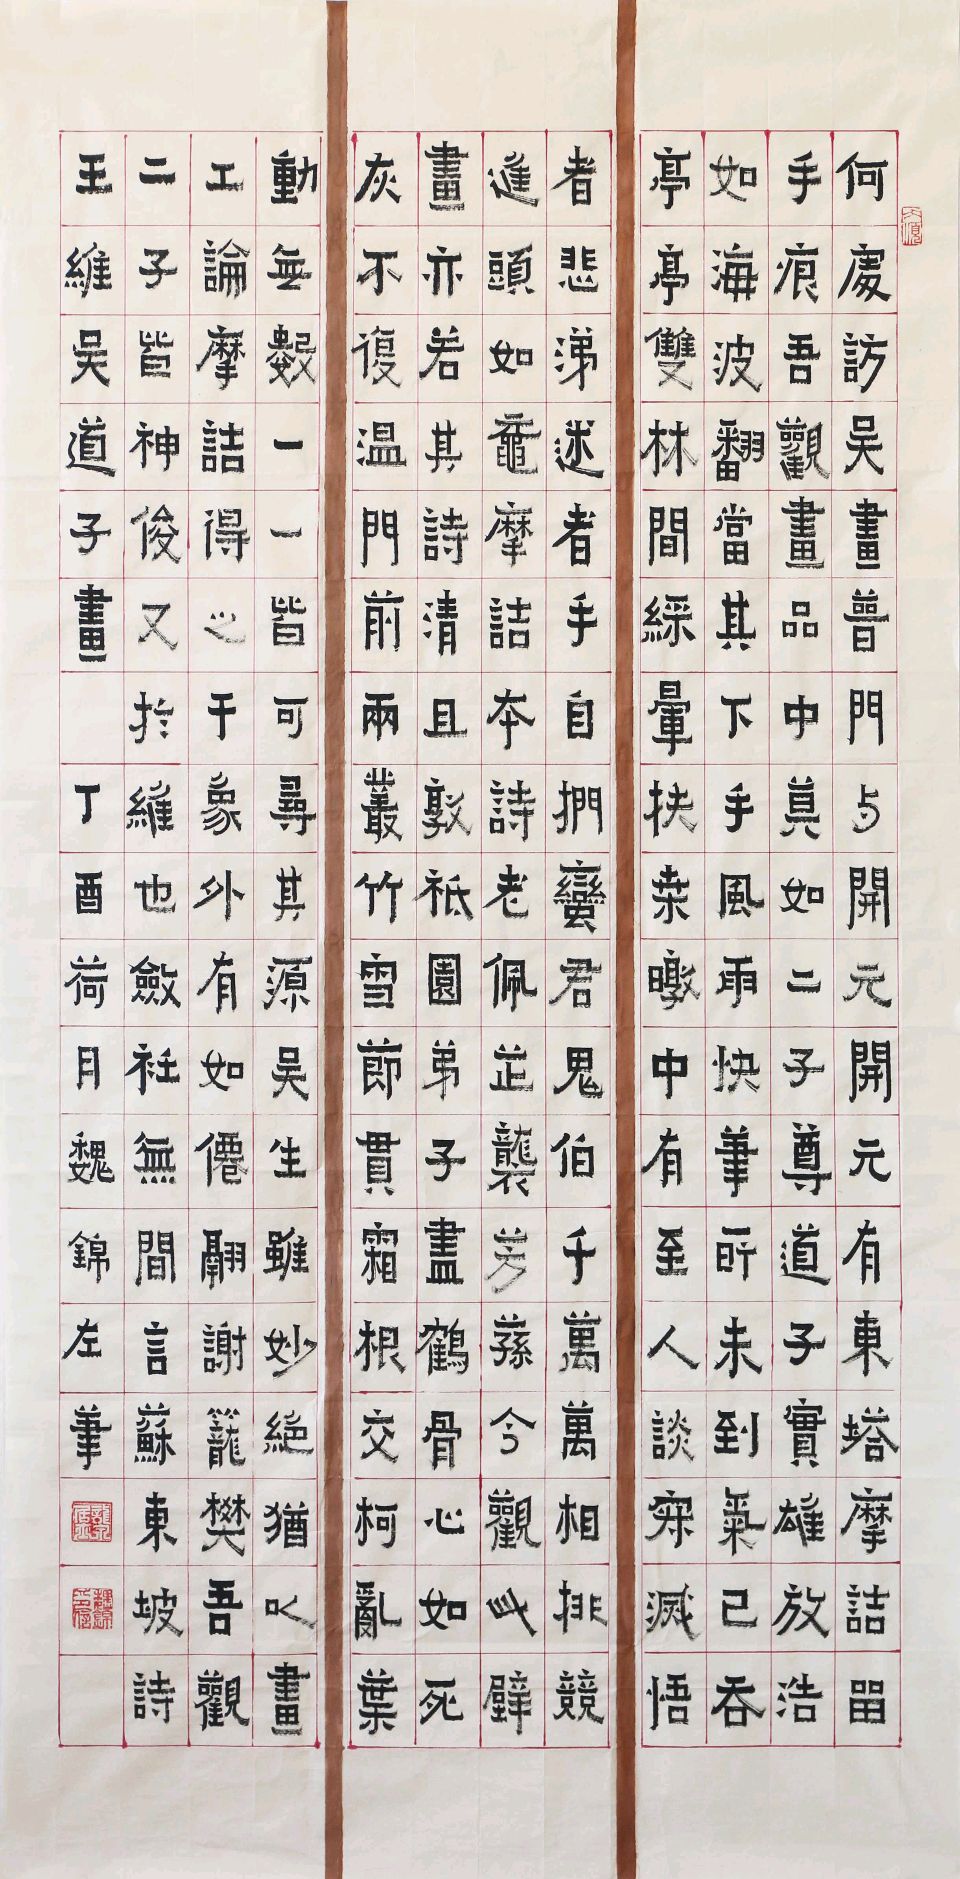 何處訪吳畫普門与開元開元有東塔摩詰畱
手痕吾觀畫品中莫如二子尊道子實雄放浩
如海波翻當其下手風雨快筆所未到氣已吞
亭亭雙林間綵暈扶桑暾中有至人談寂滅悟
者悲涕迷者手自捫蠻君鬼伯千萬萬相排競
進頭如黿摩詰本詩老佩芷襲芳蓀今觀此壁
畫亦若其詩清且敦祇園弟子盡鶴骨心如死
灰不復温門前兩叢竹雪節貫霜根交柯亂葉
動無數一一皆可尋其源吳生雖妙絕猶以畫
工論摩詰得之于象外有如僊翮謝籠樊吾觀
二子皆神俊又於維也斂衽無間言蘇東坡詩
王維吳道子畫 丁酉荷月魏錦左筆